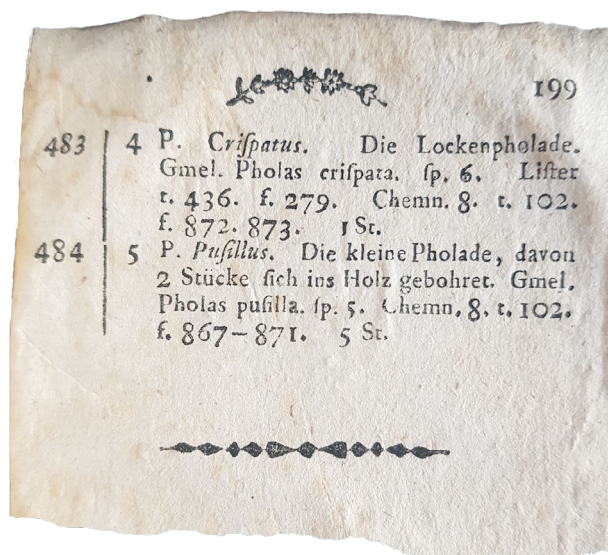 199
483 4 P. Criſpatus. Die Lockenpholade.
Gmel. Pholas criſpata. ſp. 6. Liſter
t. 436. f. 279. Chemn. 8. t. 102.
f. 872. 873. 1 St.
484 5 P. Puſillus. Die kleine Pholade, davon
2 Stücke ſich ins Holz gebohret. Gmel.
Pholas puſilla. ſp. 5. Chemn. 8. t. 102.
f. 867–871. 5 St.